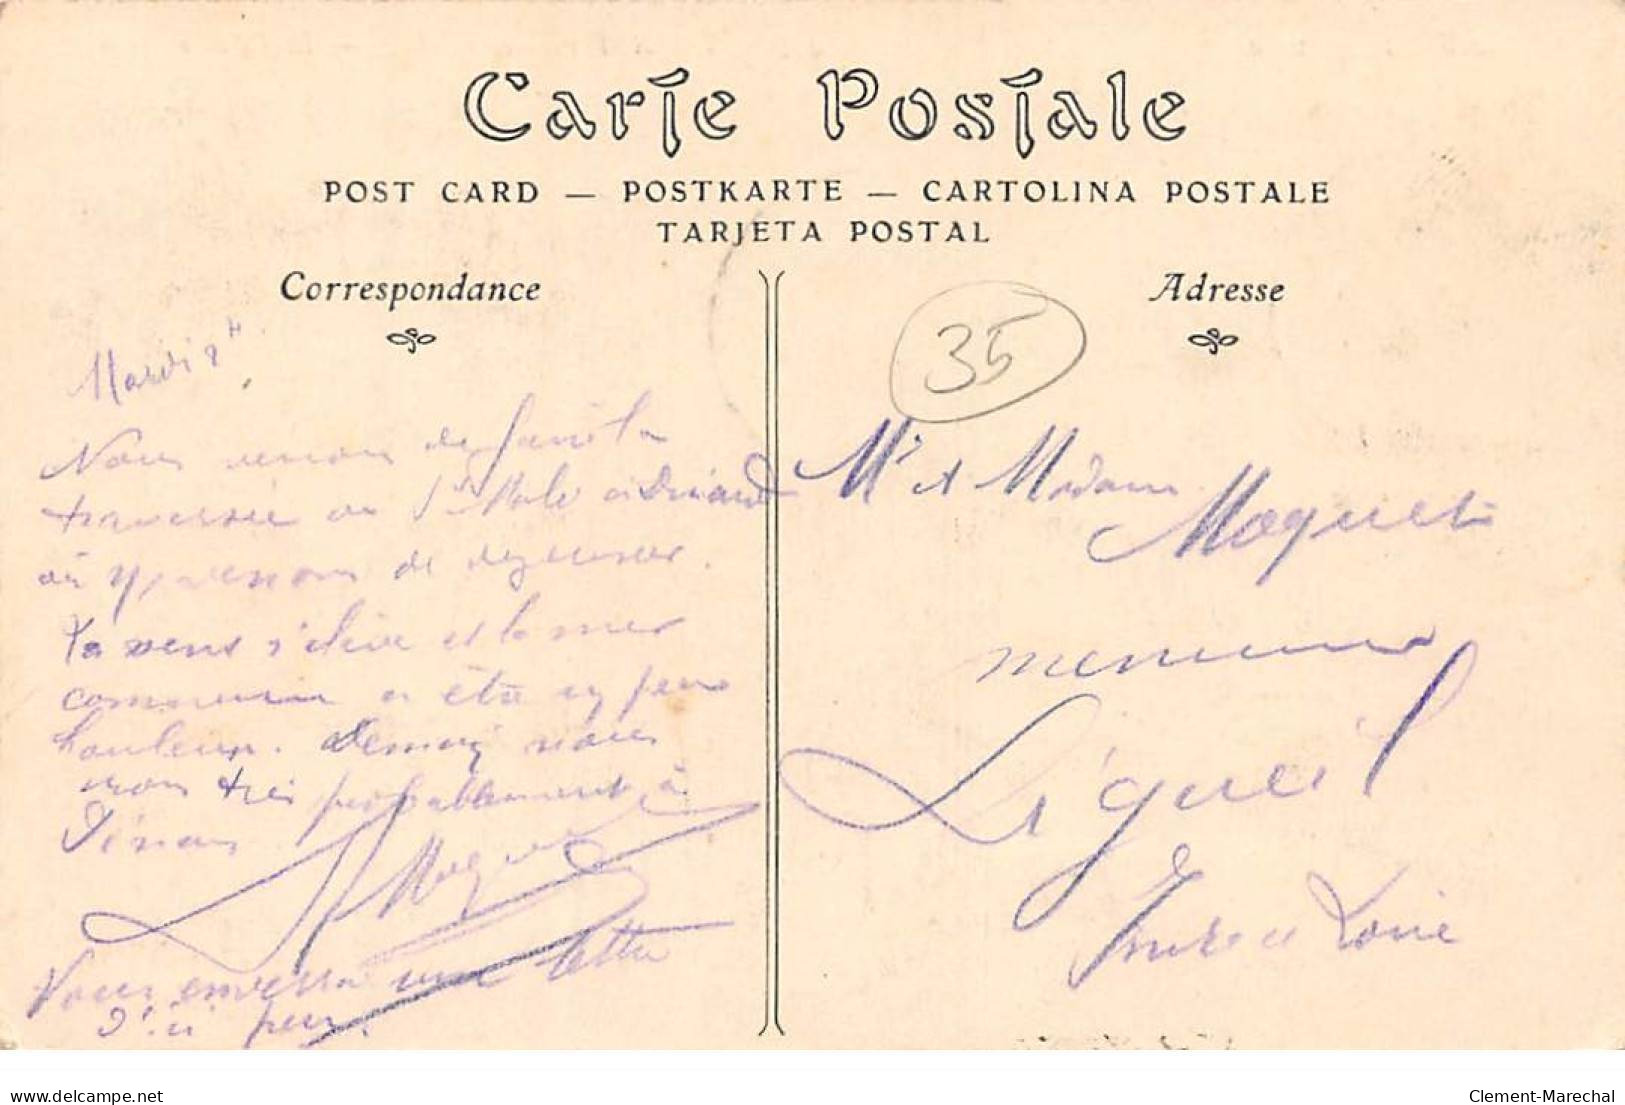 Carte Postale
POST CARD — POSTKARTE — CARTOLINA POSTALE
TARJETA POSTAL
Correspondance
Mardi 8H
Nous venons de faire la
traversée de St Malo à Dinard
où nous venons de déjeuner.
Le vent s'élève et la mer
commence à être un peu
houleuse. Demain nous
irons très probablement à
Dinan
Moquet
Vous enverrai une lettre
d'ici peu.
Adresse
35
Mr et Madame
Moquet
menuisier
Ligueil
Indre et Loire
delcampe.net
Clement-Marechal